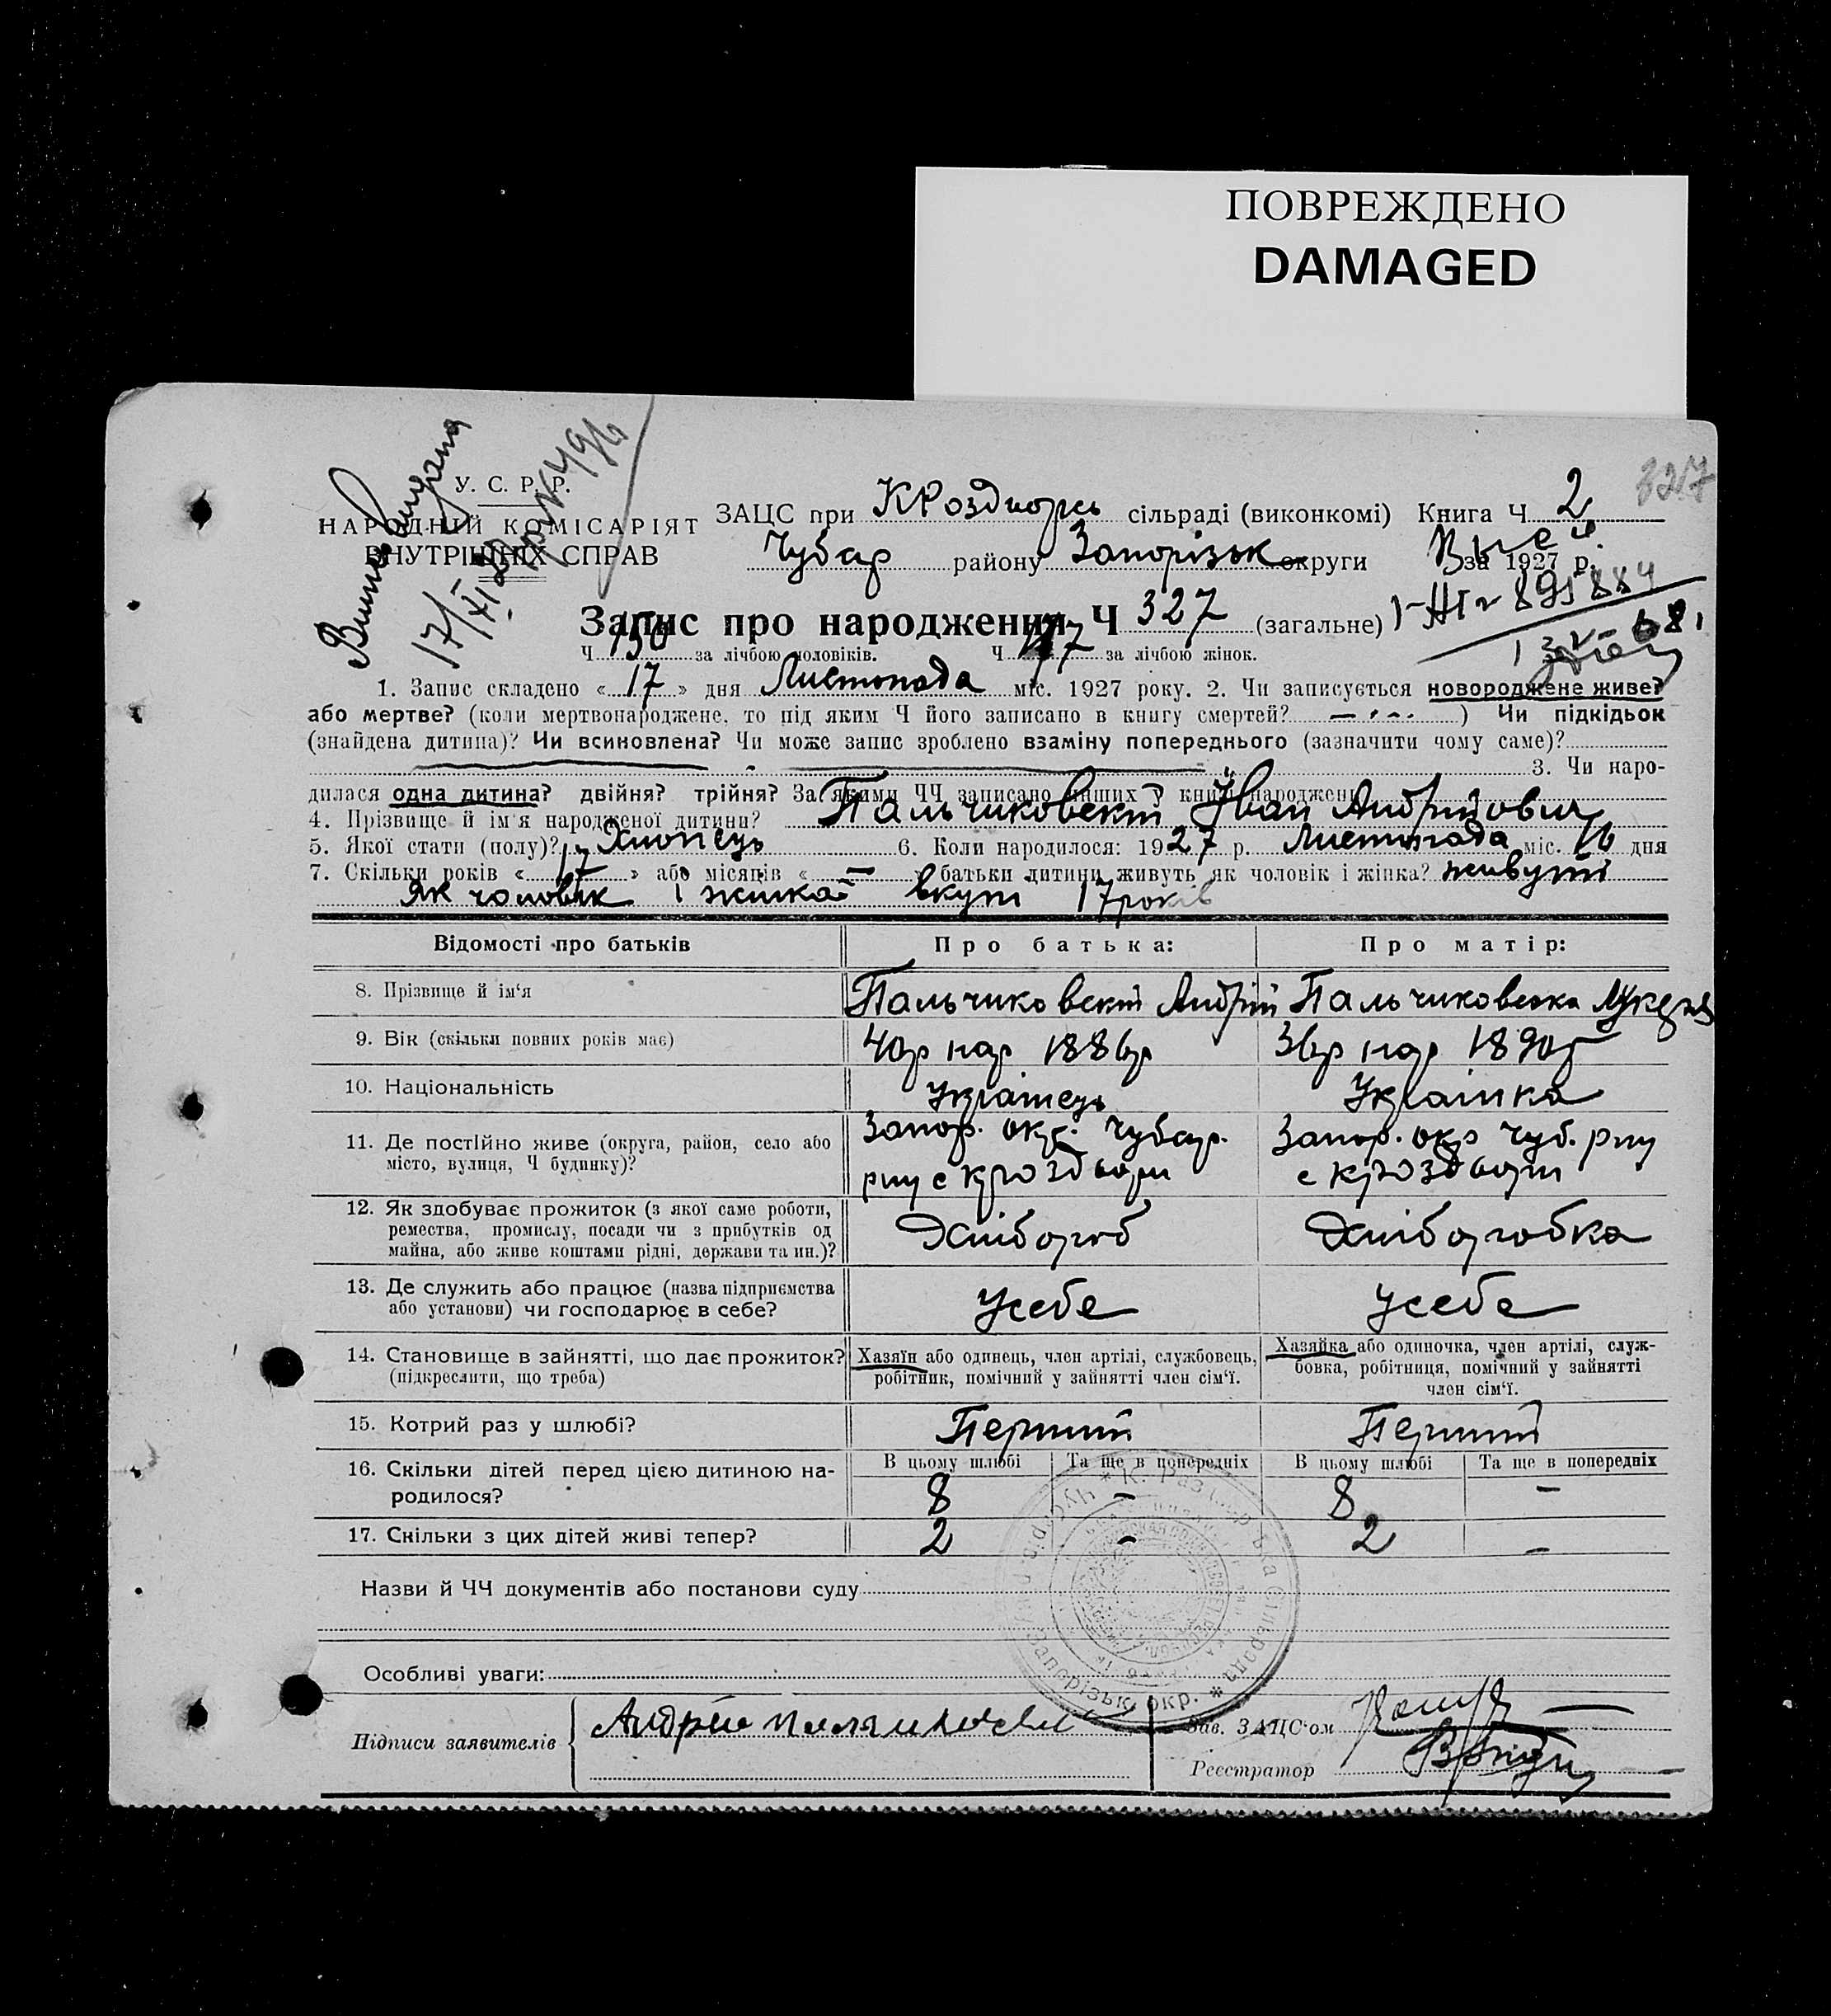 ПОВРЕЖДЕНО
DAMAGED
327
У. С. Р. Р.
НАРОДНІЙ КОМІСАРІЯТ
ВНУТРІШНІХ СПРАВ
17/XI
ЗАЦС при сільраді (виконкомі) Книга Ч 2
Чубар району Запорізьк округи за 1927 р.
Запис про народження Ч 327 (загальне)
Ч 150 за лічбою чоловіків. Ч за лічбою жінок.
1. Запис складено « 17 » дня Листопада міс. 1927 року. 2. Чи записується новороджене живе?
або мертве? (коли мертвонароджене, то під яким Ч його записано в книгу смертей? ) Чи підкідьок
(знайдена дитина)? Чи всиновлена? Чи може запис зроблено взаміну попереднього (зазначити чому саме)?
3. Чи наро-
дилася одна дитина? двійня? трійня? За якими ЧЧ записано инших в книзі народжені
4. Прізвище й ім'я народженої дитини? Пальчиковский Іван Андрійович
5. Якої стати (полу)? Хлопець 6. Коли народилося: 1927 р. Листопада міс. 16 дня
7. Скільки років « 17 » або місяців « — » батьки дитини живуть як чоловік і жінка? живуть
як чоловік і жінка вкупі 17 років
Відомості про батьків Про батька: Про матір:
8. Прізвище й ім'я Пальчиковский Андрій Пальчиковска Лукерія
9. Вік (скільки повних років має) 40р нар 1886р 36р нар 1890р
10. Національність Українець Українка
11. Де постійно живе (округа, район, село або Запор. окр. Чубар. Запор. окр Чуб. р-ну
місто, вулиця, Ч будинку)? р-ну с
12. Як здобуває прожиток (з якої саме роботи,
ремества, промислу, посади чи з прибутків од Хлібороб Хліборобка
майна, або живе коштами рідні, держави та ин.)?
13. Де служить або працює (назва підприємства
або установи) чи господарює в себе? усебе усебе
14. Становище в зайнятті, що дає прожиток? Хазяїн або одинець, член артілі, службовець, Хазяйка або одиночка, член артілі, служ-
(підкреслити, що треба) робітник, помічний у зайнятті член сім'ї. бовка, робітниця, помічний у зайнятті
член сім'ї.
15. Котрий раз у шлюбі? Перший Перший
16. Скільки дітей перед цією дитиною на- В цьому шлюбі Та ще в попередніх В цьому шлюбі Та ще в попередніх
родилося? 8 - 8 -
17. Скільки з цих дітей живі тепер? 2 - 2 -
Назви й ЧЧ документів або постанови суду
Особливі уваги:
Запорізьк. окр.
Підписи заявителів Андрій Зав. ЗАЦС'ом
Реєстратор